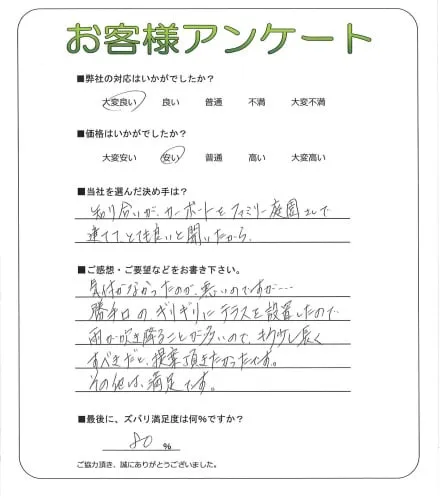 お客様アンケート
■弊社の対応はいかがでしたか？
大変良い 良い 普通 不満 大変不満
■価格はいかがでしたか？
大変安い 安い 普通 高い 大変高い
■当社を選んだ決め手は？
知り合いが、カーポートをファミリー庭園さんで
建てて、とても良いと聞いたから。
■ご感想・ご要望などをお書き下さい。
気付かなかったのが、悪いのですが……
勝手口のギリギリにテラスを設置したので
雨が吹き降ることが多いので、もう少し長く
すべきだと、提案頂きたかったです。
その他は、満足です。
■最後に、ズバリ満足度は何％ですか？
80 %
ご協力頂き、誠にありがとうございました。